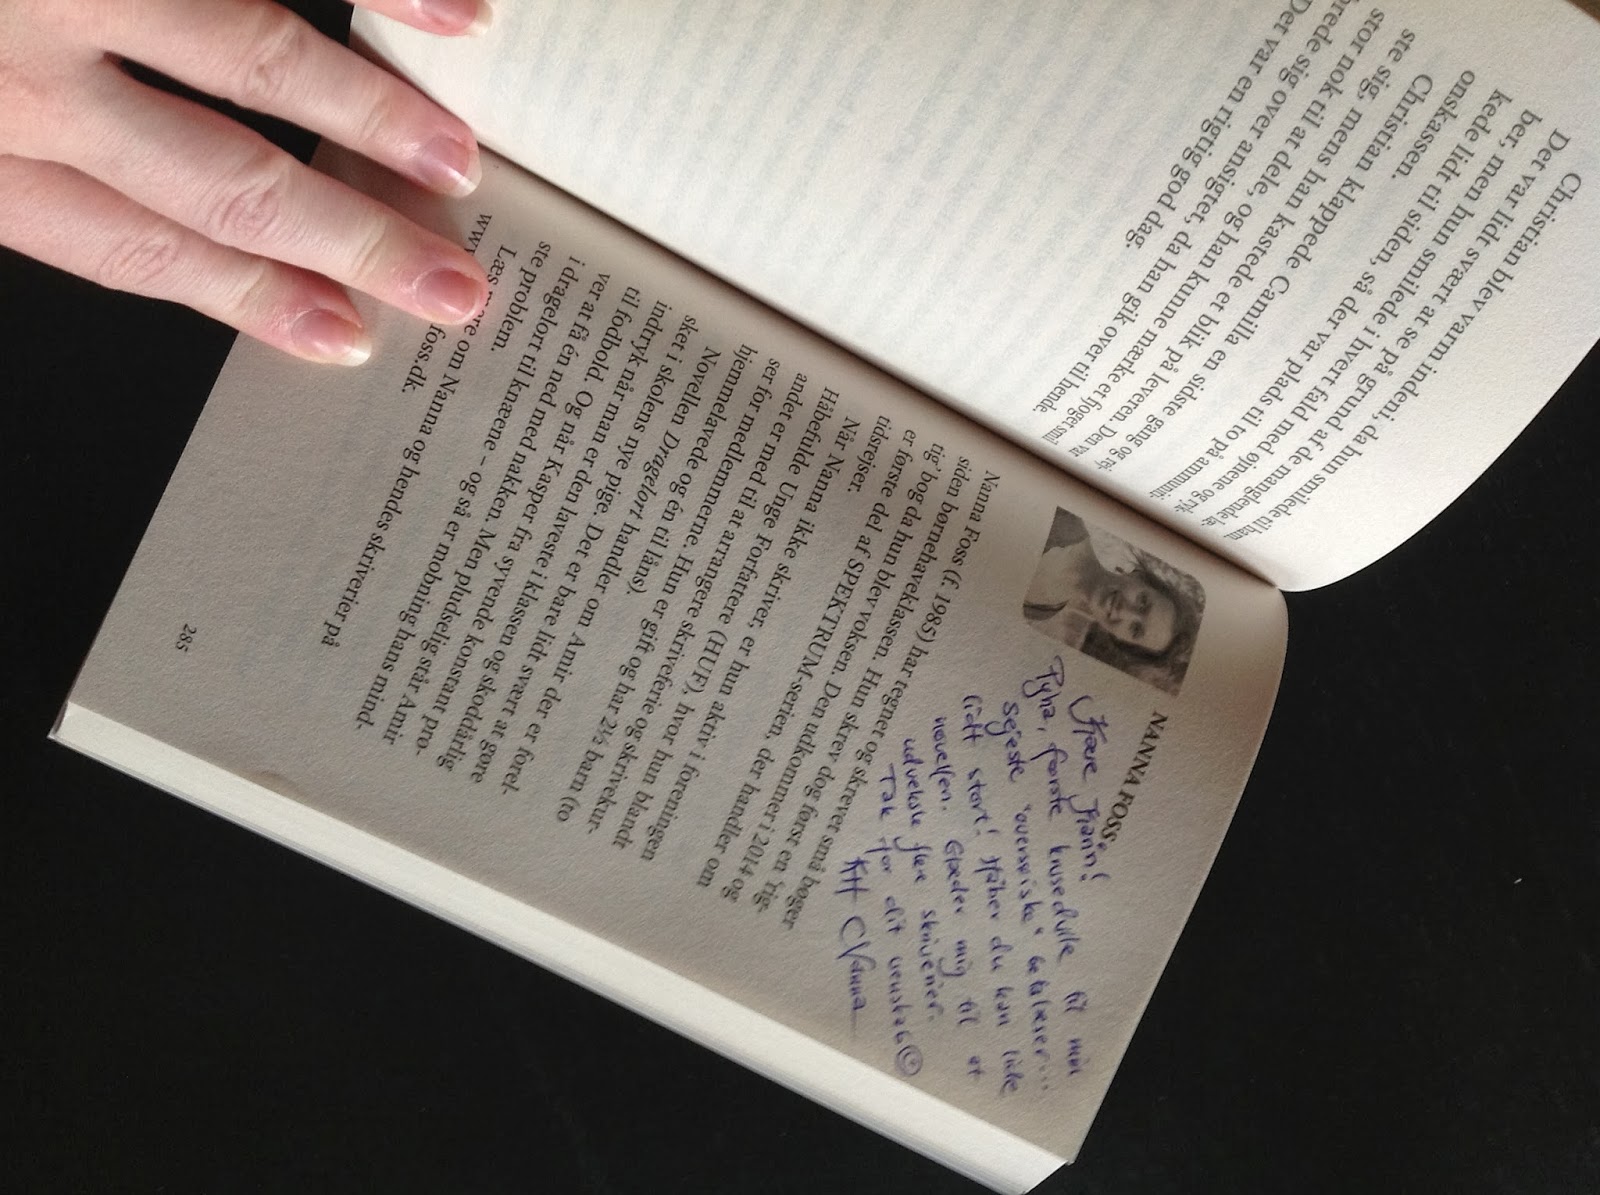 Christian blev varm indeni, da hun smilede til ham.
Det var lidt svært at se på grund af de manglende læ-
ber, men hun smilede i hvert fald med øjnene og ryk-
kede lidt til siden, så der var plads til to på ammuniti-
onskassen.
Christian klappede Camilla en sidste gang og rej-
ste sig, mens han kastede et blik på leveren. Den var
stor nok til at dele, og han kunne mærke et fjoget smil
brede sig over ansigtet, da han gik over til hende.
Det var en rigtig god dag.
NANNA FOSS
Kære Fiann!
Pyha, første krusedulle til min
sejeste "oversøiske" betalæser...
lidt stort! Håber du kan lide
novellen. Glæder mig til at
udveksle flere skriverier.
Tak for dit venskab ☺
KH Nanna
Nanna Foss (f. 1985) har tegnet og skrevet små bøger
siden børnehaveklassen. Hun skrev dog først en 'rig-
tig' bog da hun blev voksen. Den udkommer i 2014 og
er første del af SPEKTRUM-serien, der handler om
tidsrejser.
Når Nanna ikke skriver, er hun aktiv i foreningen
Håbefulde Unge Forfattere (HUF), hvor hun blandt
andet er med til at arrangere skriveferie og skrivekur-
ser for medlemmerne. Hun er gift og har 2½ barn (to
hjemmelavede og én til låns).
Novellen Dragelort handler om Amir der er forel-
sket i skolens nye pige. Det er bare lidt svært at gøre
indtryk når man er den laveste i klassen og skoddårlig
til fodbold. Og når Kasper fra syvende konstant prø-
ver at få én ned med nakken. Men pludselig står Amir
i dragelort til knæene – og så er mobning hans mind-
ste problem.
Læs mere om Nanna og hendes skriverier på
foss.dk.
285